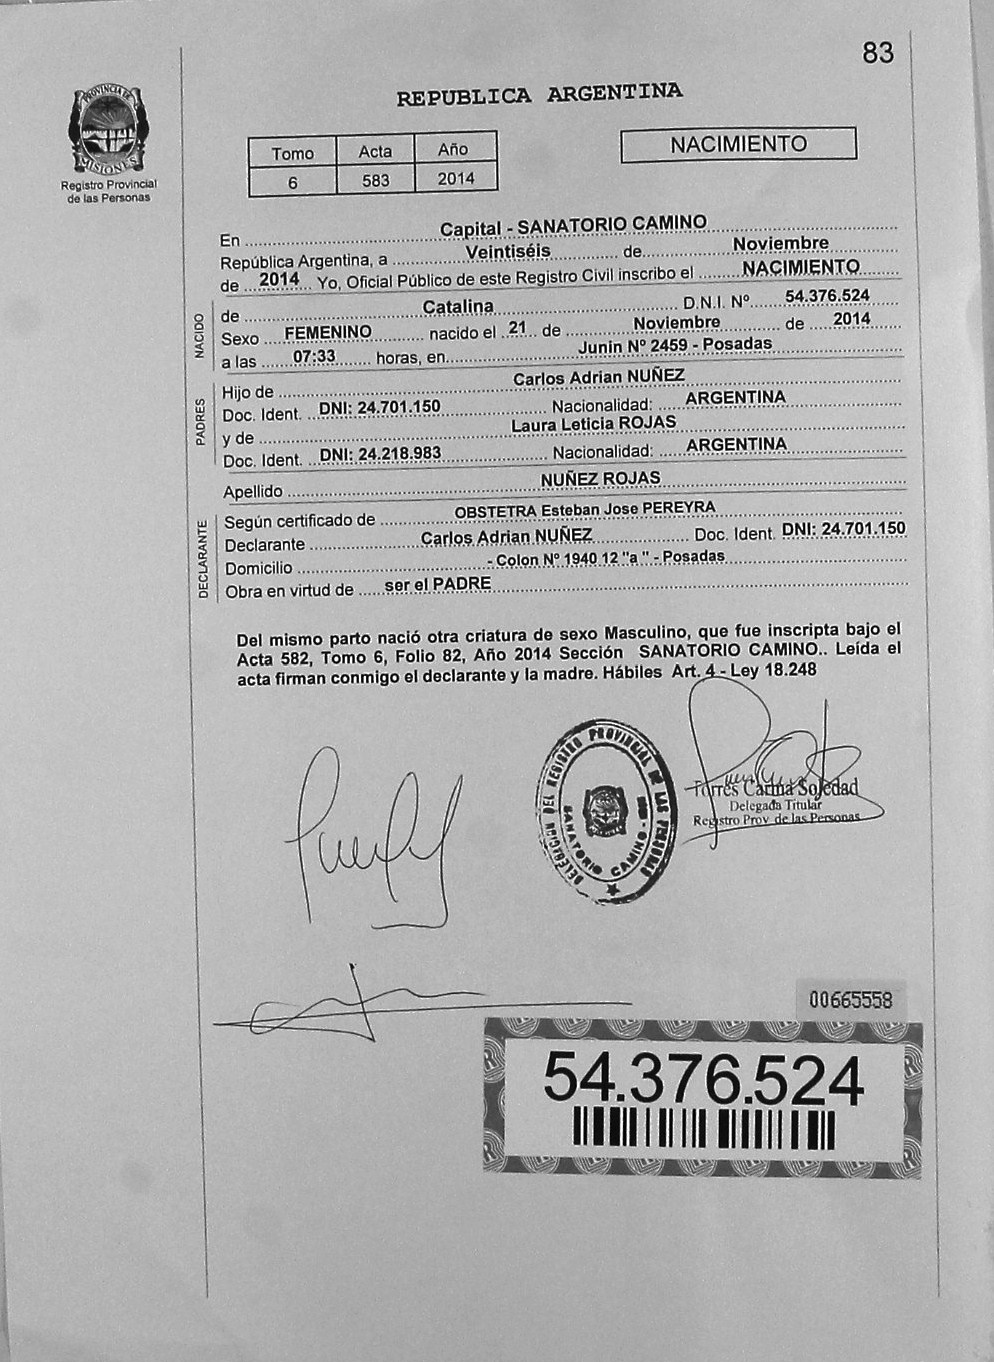 83
PROVINCIA DE
MISIONES
Registro Provincial
de las Personas
REPUBLICA ARGENTINA
Tomo Acta Año
6 583 2014
NACIMIENTO
En Capital - SANATORIO CAMINO
República Argentina, a Veintiséis de Noviembre
de 2014 Yo, Oficial Público de este Registro Civil inscribo el NACIMIENTO
NACIDO
de Catalina D.N.I. Nº 54.376.524
Sexo FEMENINO nacido el 21 de Noviembre de 2014
a las 07:33 horas, en Junin Nº 2459 - Posadas
PADRES
Hijo de Carlos Adrian NUÑEZ
Doc. Ident. DNI: 24.701.150 Nacionalidad: ARGENTINA
y de Laura Leticia ROJAS
Doc. Ident. DNI: 24.218.983 Nacionalidad: ARGENTINA
Apellido NUÑEZ ROJAS
DECLARANTE
Según certificado de OBSTETRA Esteban Jose PEREYRA
Declarante Carlos Adrian NUÑEZ Doc. Ident. DNI: 24.701.150
Domicilio - Colon Nº 1940 12 "a " - Posadas
Obra en virtud de ser el PADRE
Del mismo parto nació otra criatura de sexo Masculino, que fue inscripta bajo el
Acta 582, Tomo 6, Folio 82, Año 2014 Sección SANATORIO CAMINO.. Leída el
acta firman conmigo el declarante y la madre. Hábiles Art. 4 - Ley 18.248
DELEGACION DEL REGISTRO PROVINCIAL DE LAS PERSONAS
SANATORIO CAMINO
Torres Carina Soledad
Delegada Titular
Registro Prov de las Personas
00665558
54.376.524